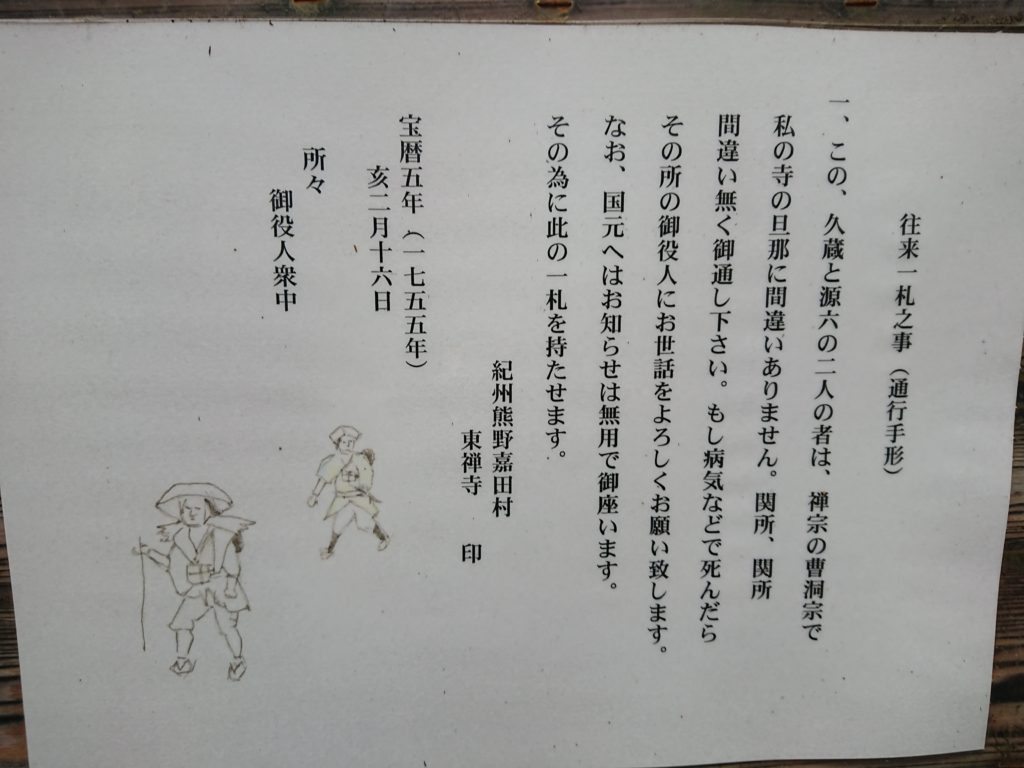 往来一札之事（通行手形）
一、この、久蔵と源六の二人の者は、禅宗の曹洞宗で
私の寺の旦那に間違いありません。関所、関所
間違い無く御通し下さい。もし病気などで死んだら
その所の御役人にお世話をよろしくお願い致します。
なお、国元へはお知らせは無用で御座います。
その為に此の一札を持たせます。
紀州熊野嘉田村
東禅寺　印
宝暦五年（一七五五年）
亥二月十六日
所々
御役人衆中